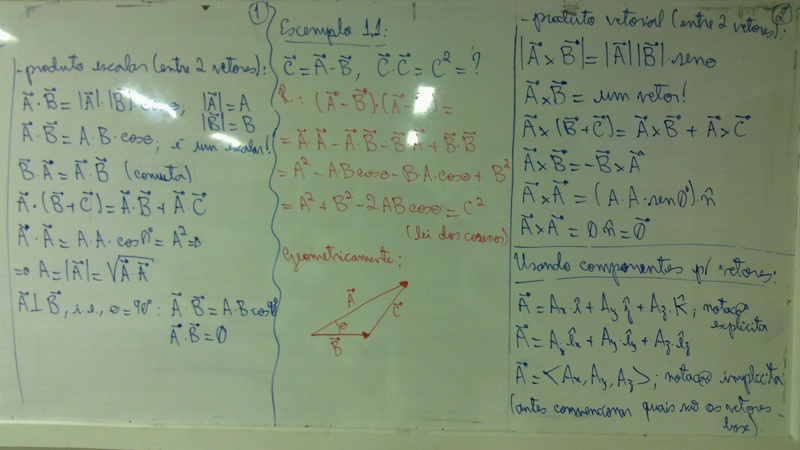 ①
- produto escalar (entre 2 vetores):
A⃗·B⃗ = |A⃗|·|B⃗| cosθ; |A⃗| = A
|B⃗| = B
A⃗·B⃗ = A·B·cosθ; é um escalar!
B⃗·A⃗ = A⃗·B⃗ (comuta)
A⃗·(B⃗+C⃗) = A⃗·B⃗ + A⃗·C⃗
A⃗·A⃗ = A·A·cos0° = A² ⇒
⇒ A = |A⃗| = √(A⃗·A⃗)
A⃗⊥B⃗, i.e., θ=90°: A⃗·B⃗ = A·B cos90°
A⃗·B⃗ = 0
Exemplo 1.1:
C⃗ = A⃗-B⃗, C⃗·C⃗ = C² = ?
R.: (A⃗-B⃗)·(A⃗-B⃗) =
= A⃗·A⃗ - A⃗·B⃗ - B⃗·A⃗ + B⃗·B⃗
= A² - A·B cosθ - B·A·cosθ + B²
= A² + B² - 2AB cosθ = C²
(lei dos cosenos)
Geometricamente:
A⃗
C⃗
θ
B⃗
②
- produto vetorial (entre 2 vetores):
|A⃗ x B⃗| = |A⃗| |B⃗|·senθ
A⃗ x B⃗ = um vetor!
A⃗ x (B⃗+C⃗) = A⃗ x B⃗ + A⃗ x C⃗
A⃗ x B⃗ = -B⃗ x A⃗
A⃗ x A⃗ = (A·A·sen0°)·n̂
A⃗ x A⃗ = 0 n̂ = 0⃗
Usando componentes p/ vetores:
A⃗ = Ax·î + Ay·ĵ + Az·k̂; notação
explícita
A⃗ = Ax·îx + Ay·îy + Az·îz
A⃗ = <Ax, Ay, Az>; notação implícita
(antes convencionar quais são os vetores
base)